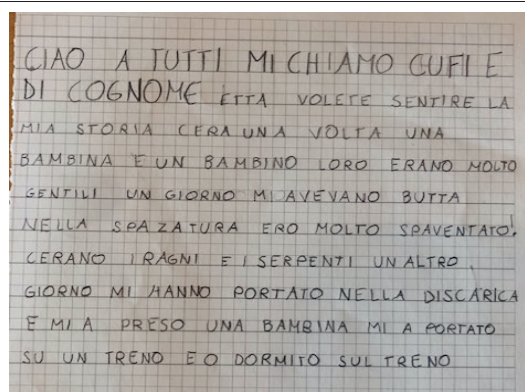 CIAO A TUTTI MI CHIAMO CUFI E
DI COGNOME ETTA VOLETE SENTIRE LA
MIA STORIA CERA UNA VOLTA UNA
BAMBINA E UN BAMBINO LORO ERANO MOLTO
GENTILI UN GIORNO MI AVEVANO BUTTA
NELLA SPAZATURA ERO MOLTO SPAVENTATO!
CERANO I RAGNI E I SERPENTI UN ALTRO
GIORNO MI HANNO PORTATO NELLA DISCARICA
E MI A PRESO UNA BAMBINA MI A PORTATO
SU UN TRENO E O DORMITO SUL TRENO